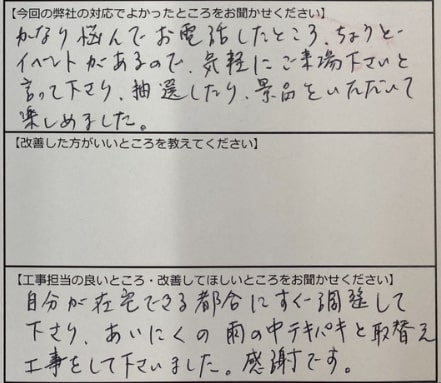 【今回の弊社の対応でよかったところをお聞かせください】
かなり悩んでお電話したところ、ちょうど
イベントがあるので、気軽にご来場下さいと
言って下さり、抽選したり、景品をいただいて
楽しめました。
【改善した方がいいところを教えてください】
【工事担当の良いところ・改善してほしいところをお聞かせください】
自分が在宅できる都合にすぐ調整して
下さり、あいにくの雨の中テキパキと取替え
工事をして下さいました。感謝です。